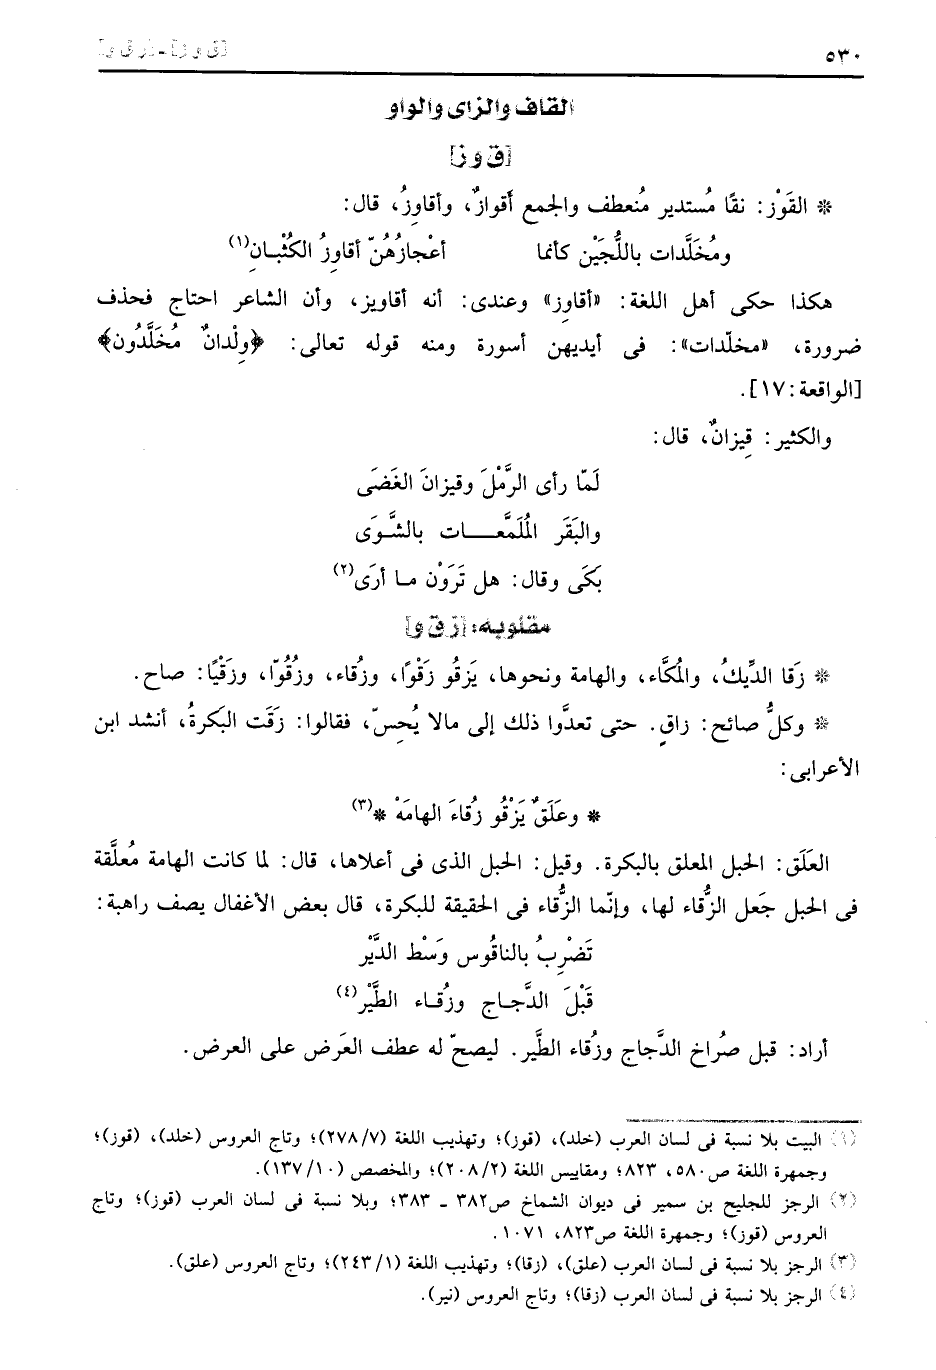 ٥٣٠
[ق و ز] ـ [ز ق و]
القاف والزاى والواو
[ق و ز]
* القَوْز: نقًا مُستدير مُنعطف والجمع أَقوازٌ، وأقاوِزُ، قال:
ومُخَلَّدات باللُّجَيْن كأنما أعْجازُهُنّ أقاوِزُ الكُثْبـانِ(١)
هكذا حكى أهل اللغة: «أقاوِز» وعندى: أنه أقاويز، وأن الشاعر احتاج فحذف
ضرورة، «مخلّدات»: فى أيديهن أسورة ومنه قوله تعالى: ﴿وِلْدانٌ مُخَلَّدُون﴾
[الواقعة:١٧].
والكثير: قِيزانٌ، قال:
لَمّا رأى الرَّمْلَ وقيزانَ الغَضَى
والبَقَر المُلَمَّعـــات بالشَّوَى
بَكَى وقال: هل تَرَوْن مـا أرَى(٢)
مقلوبه: [ز ق و]
* زَقا الدِّيكُ، والمُكَّاء، والهامة ونحوها، يَزقُو زَقْوًا، وزُقاء، وزُقُوّا، وزَقْيًا: صاح.
* وكلُّ صائح: زاقٍ. حتى تعدَّوا ذلك إلى مالا يُحِسّ، فقالوا: زَقَت البَكرةُ، أنشد ابن
الأعرابى:
* وعَلَقٌ يَزْقُو زُقاءَ الهامَهْ *(٣)
العَلَق: الحبل المعلق بالبكرة. وقيل: الحبل الذى فى أعلاها، قال: لما كانت الهامة مُعلَّقة
فى الحبل جَعل الزُّقاء لها، وإنّما الزُّقاء فى الحقيقة للبكرة، قال بعض الأغفال يصف راهبة:
تَضْرِبُ بالناقُوس وَسْط الدَّيْر
قَبْلَ الدَّجـاج وزُقـاء الطَّيْر(٤)
أراد: قبل صُراخ الدَّجاج وزُقاء الطَّير. ليصحّ له عطف العَرض على العرض.
(١) البيت بلا نسبة فى لسان العرب (خلد)، (قوز)؛ وتهذيب اللغة (٢٧٨/٧)؛ وتاج العروس (خلد)، (قوز)؛
وجمهرة اللغة ص٥٨٠، ٨٢٣؛ ومقاييس اللغة (٢٠٨/٢)؛ والمخصص (١٣٧/١٠).
(٢) الرجز للجليح بن سمير فى ديوان الشماخ ص٣٨٢ ـ ٣٨٣؛ وبلا نسبة فى لسان العرب (قوز)؛ وتاج
العروس (قوز)؛ وجمهرة اللغة ص٨٢٣، ١٠٧١.
(٣) الرجز بلا نسبة فى لسان العرب (علق)، (زقا)؛ وتهذيب اللغة (٢٤٣/١)؛ وتاج العروس (علق).
(٤) الرجز بلا نسبة فى لسان العرب (زقا)؛ وتاج العروس (نير).